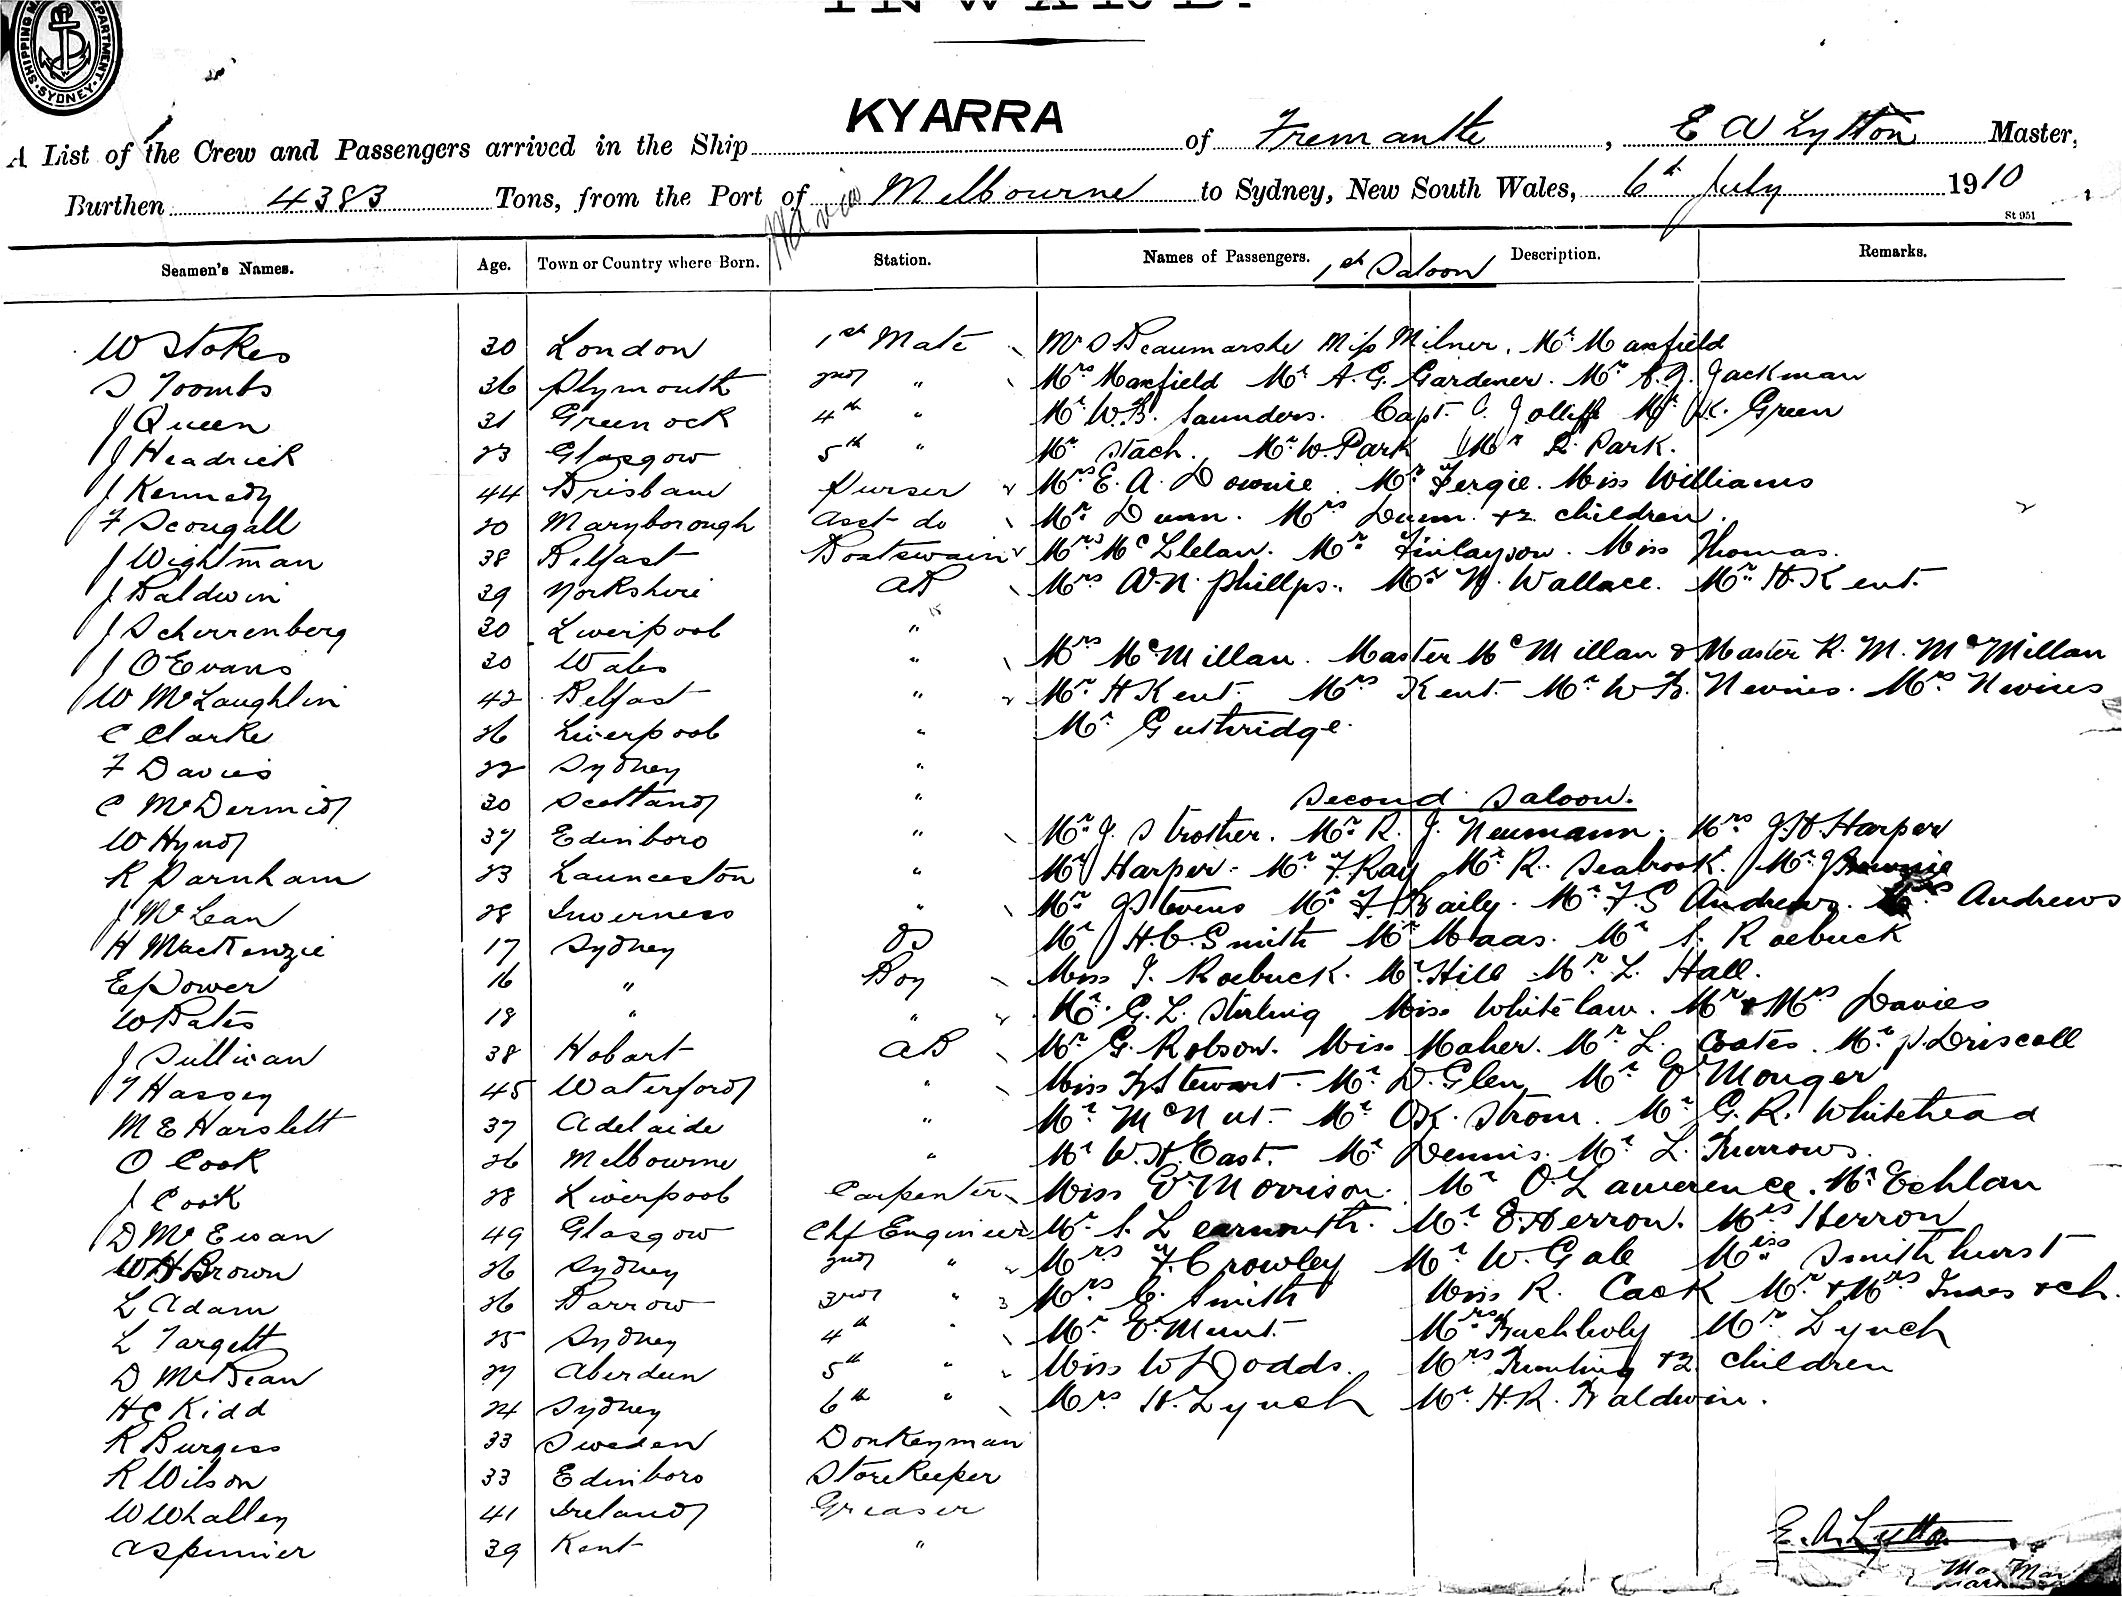 INWARD.
SHIPPING MASTER'S DEPARTMENT. SYDNEY
A List of the Crew and Passengers arrived in the Ship KYARRA of Fremantle, E A Lytton Master,
Burthen 4383 Tons, from the Port of via Melbourne to Sydney, New South Wales, 6th July 1910
St 951
Seamen's Names. Age. Town or Country where Born. Station. Names of Passengers. Description. Remarks.
1st Saloon
W Stokes 30 London 1st Mate Mr S Beaumarshe Miss Milner. Mr Maxfield
S Toombs 36 Plymouth 2nd " Mrs Maxfield Mr A.G. Gardener. Mr A.J. Jackman
J Queen 31 Greenock 4th " Mr W.B. Saunders. Capt. C. Jolliffe Mr K. Green
J Headrick 23 Glasgow 5th " Mr Stach. Mr W. Park Mr R. Park.
J Kennedy 44 Brisbane Purser Mrs E. A. Downie. Mr Fergie. Miss Williams
F Scougall 20 Maryborough Asst do Mr Dunn. Mrs Dunn. +2 children.
J Wightman 38 Belfast Boatswain Mrs McLlelan. Mr Finlayson. Miss Thomas.
J Baldwin 39 Yorkshire AB Mrs W.N. Phillps. Mr N. Wallace. Mr H. Kent.
J Scherrenberg 30 Liverpool "
J O Evans 30 Wales " Mrs McMillan. Master McMillan & Master R. M. McMillan
W McLaughlin 42 Belfast " Mr H Kent. Mrs Kent. Mr W.B. Nevines. Mrs Nevines
C Clarke 26 Liverpool " Mr Guthridge.
F Davies 22 Sydney "
C McDermid 30 Scotland "
Second Saloon.
W Hynd 37 Edinboro " Mr J. Strother. Mr R. J. Neumann. Mrs J.H. Harper
R Parnham 23 Launceston " Mr Harper. Mr F. Ray Mr R. Seabrook. Mr J
J McLean 28 Inverness " Mr J Stevens Mr F Baily. Mr F.S Andrews. Mrs Andrews
H MacKenzie 17 Sydney OS Mr H.C. Smith Mr Maas. Mr S. Roebuck
E Power 16 " Boy Miss I. Roebuck. Mr Hill Mr L. Hall.
W Bates 18 " " Mr G. L. Stirling Miss Whitelaw. Mr & Mrs Davies
J Sullivan 38 Hobart AB Mr G. Robson. Miss Maher. Mr L. Coates. Mr P. Driscoll
T Hassey 45 Waterford " Miss B Stewart. Mr D. Glen Mr E Monger
M E Harslett 37 Adelaide " Mr McNut. Mr O.K. Strom. Mr G. R. Whitehead
O Cook 26 Melbourne " Mr W.H. East. Mr Dennis. Mr L. Burrows.
J Cook 28 Liverpool Carpenter Miss E Morrison. Mr O. Lawerence. Mr Echlan
D McEwan 49 Glasgow Chf Engineer Mr S. Learmonth. Mr E. Herron. Mrs Herron
W H Brown 26 Sydney 2nd " Mrs F. Crowley Mr W. Gale Miss Smithhurst
L Adam 26 Barrow 3rd " Mrs C. Smith Miss R. Cack Mr & Mrs Innes + ch.
L Targett 25 Sydney 4th " Mr E. Munt. Mrs Buchholy Mr Lynch
D McBean 27 Aberdeen 5th " Miss W Dodds. Mrs Bunting +2 children
H C Kidd 24 Sydney 6th " Mrs H. Lynch Mr H.R. Baldwin.
R Burgess 33 Sweden Donkeyman
R Wilson 33 Edinboro Storekeeper
W Whalley 41 Ireland Greaser
A Spinnier 39 Kent "
E. A. Lytton